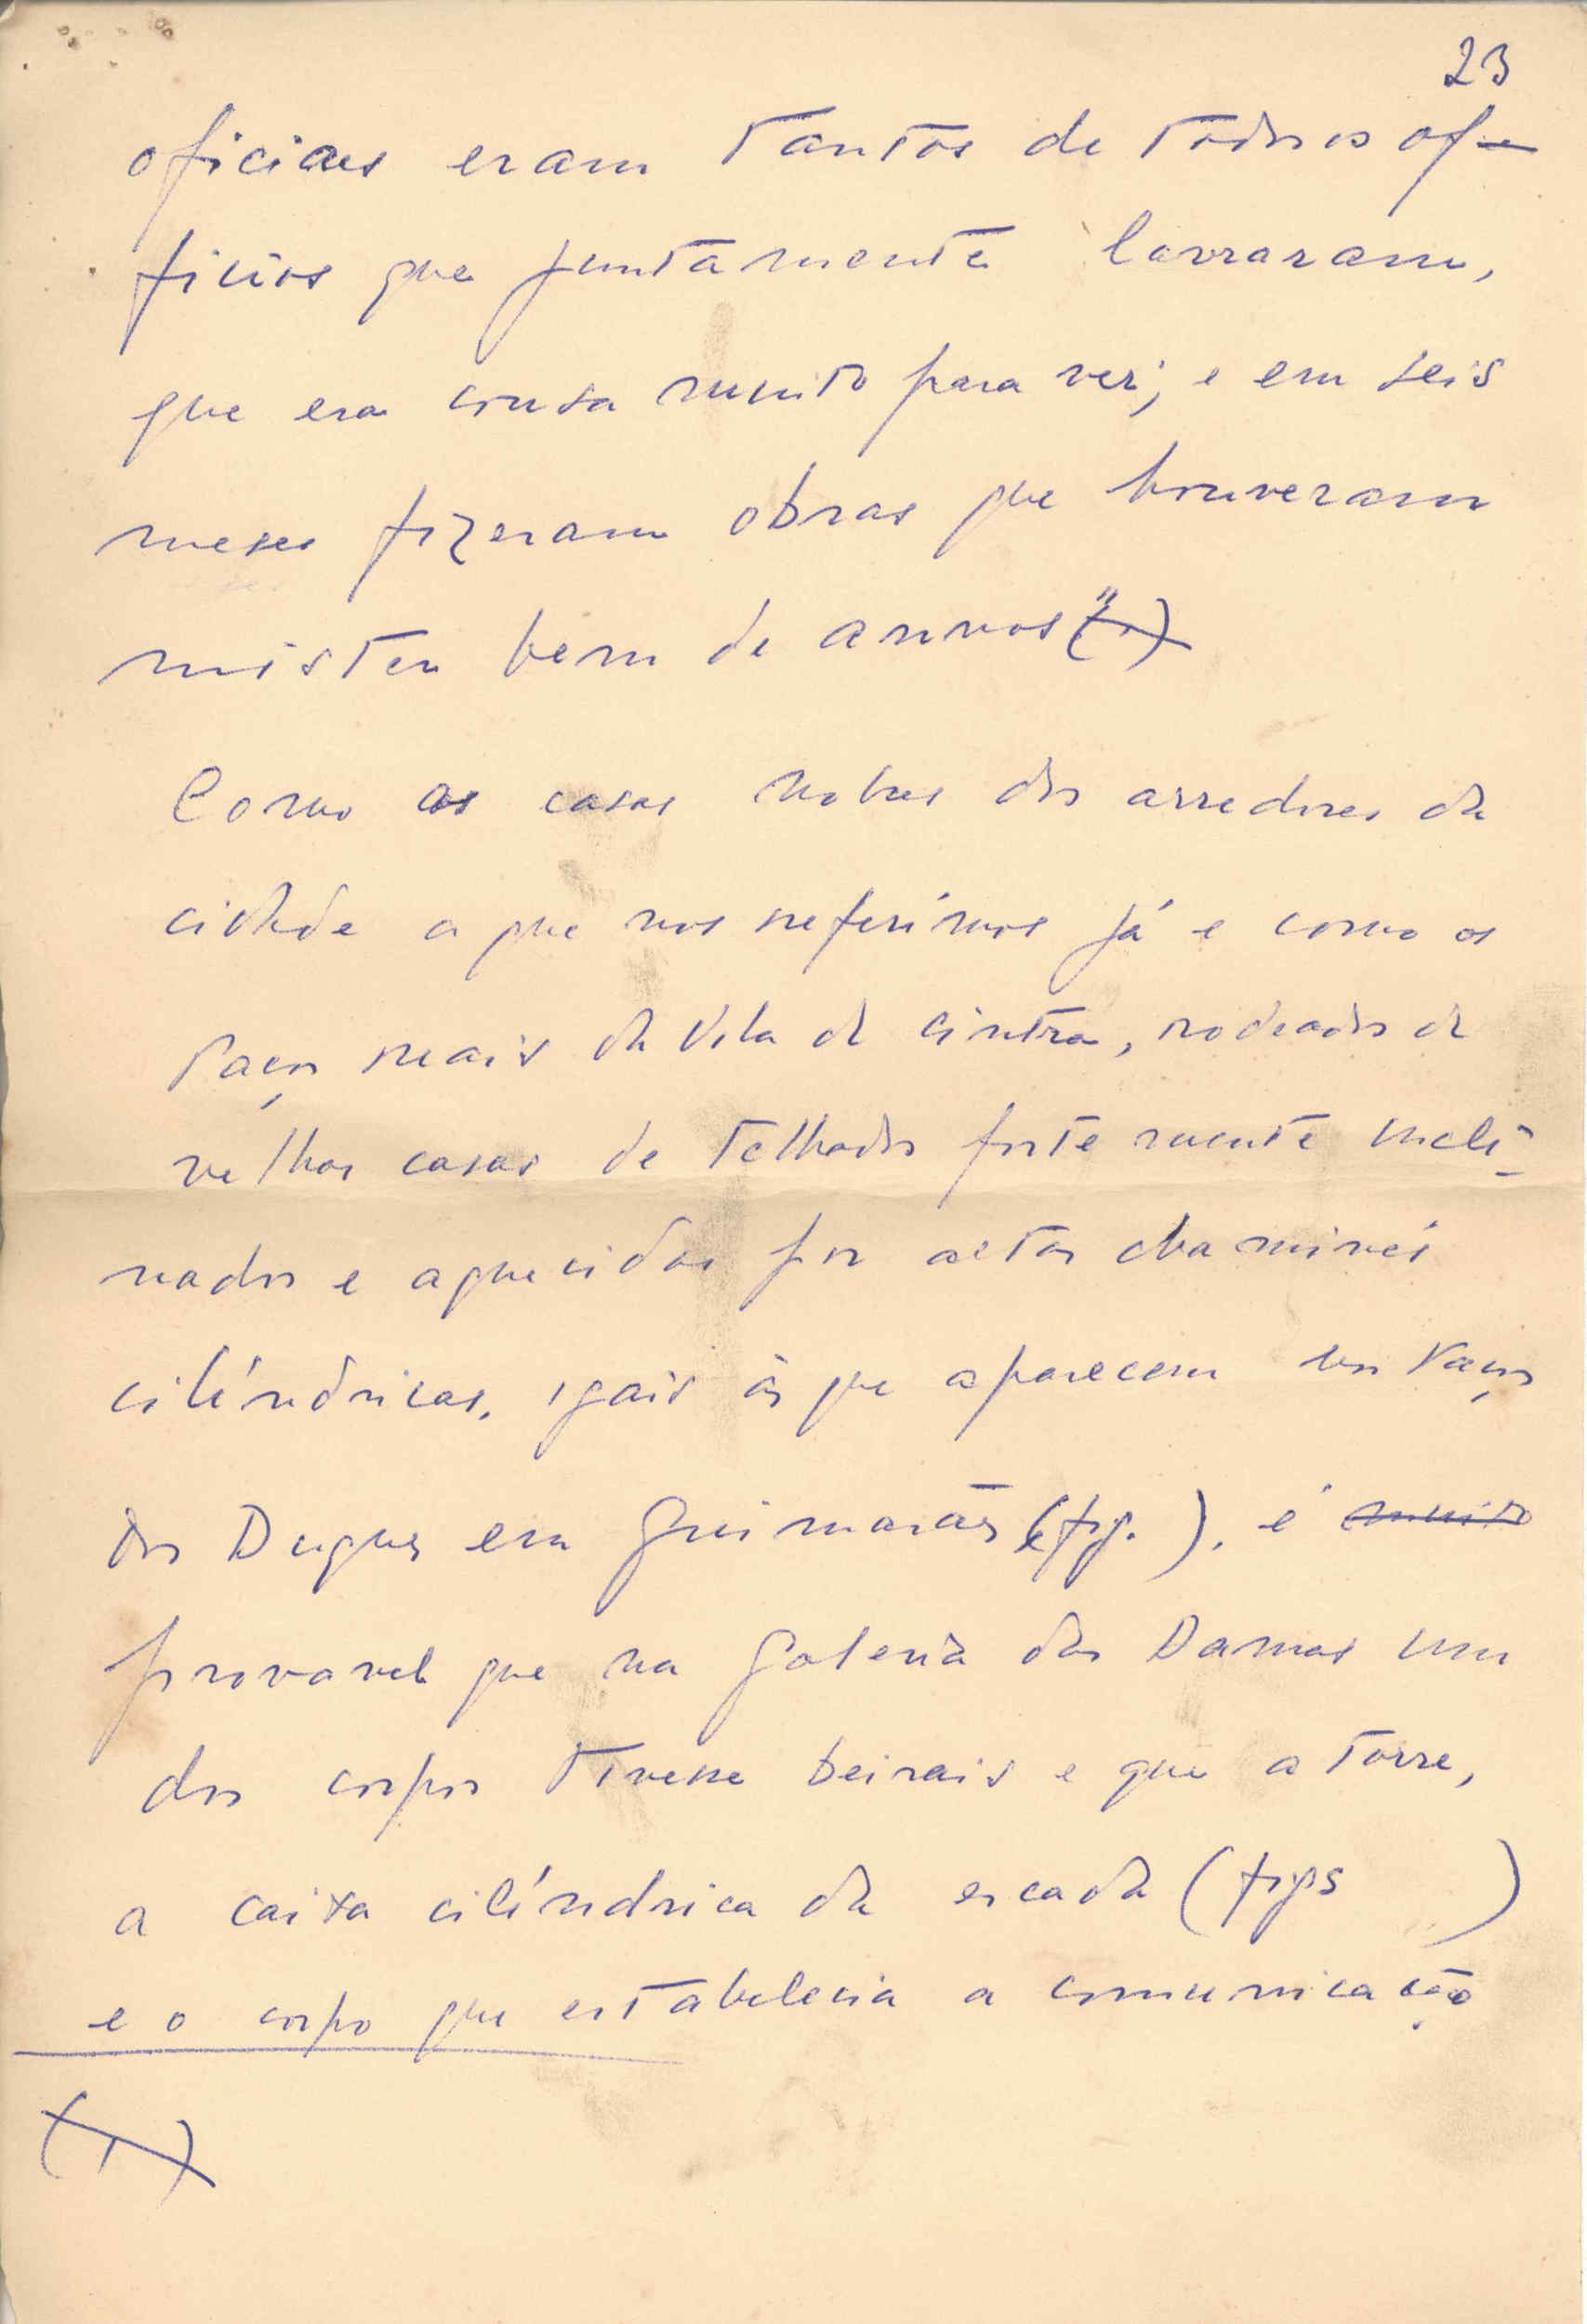 23
oficiaes eram tantos de todos os of-
ficios que juntamente lavraram,
que era cousa muito para ver; e em seis
meses fizeram obras que houveram
mister bem de annos" (1)
Como as casas nobres dos arredores da
cidade a que nos referimos já e como os
Paços reais da Vila de Cintra, rodeados de
velhas casas de telhados fortemente incli-
nados e aquecidas por altas chaminés
cilíndricas, igais às que aparecem nos Paços
dos Duques em Guimarães (fig. ), é muito
provavel que na Galeria das Damas um
dos corpos tivesse beirais e que a torre,
a caixa cilíndrica da escada (figs )
e o corpo que estabelecia a comunicação
(1)